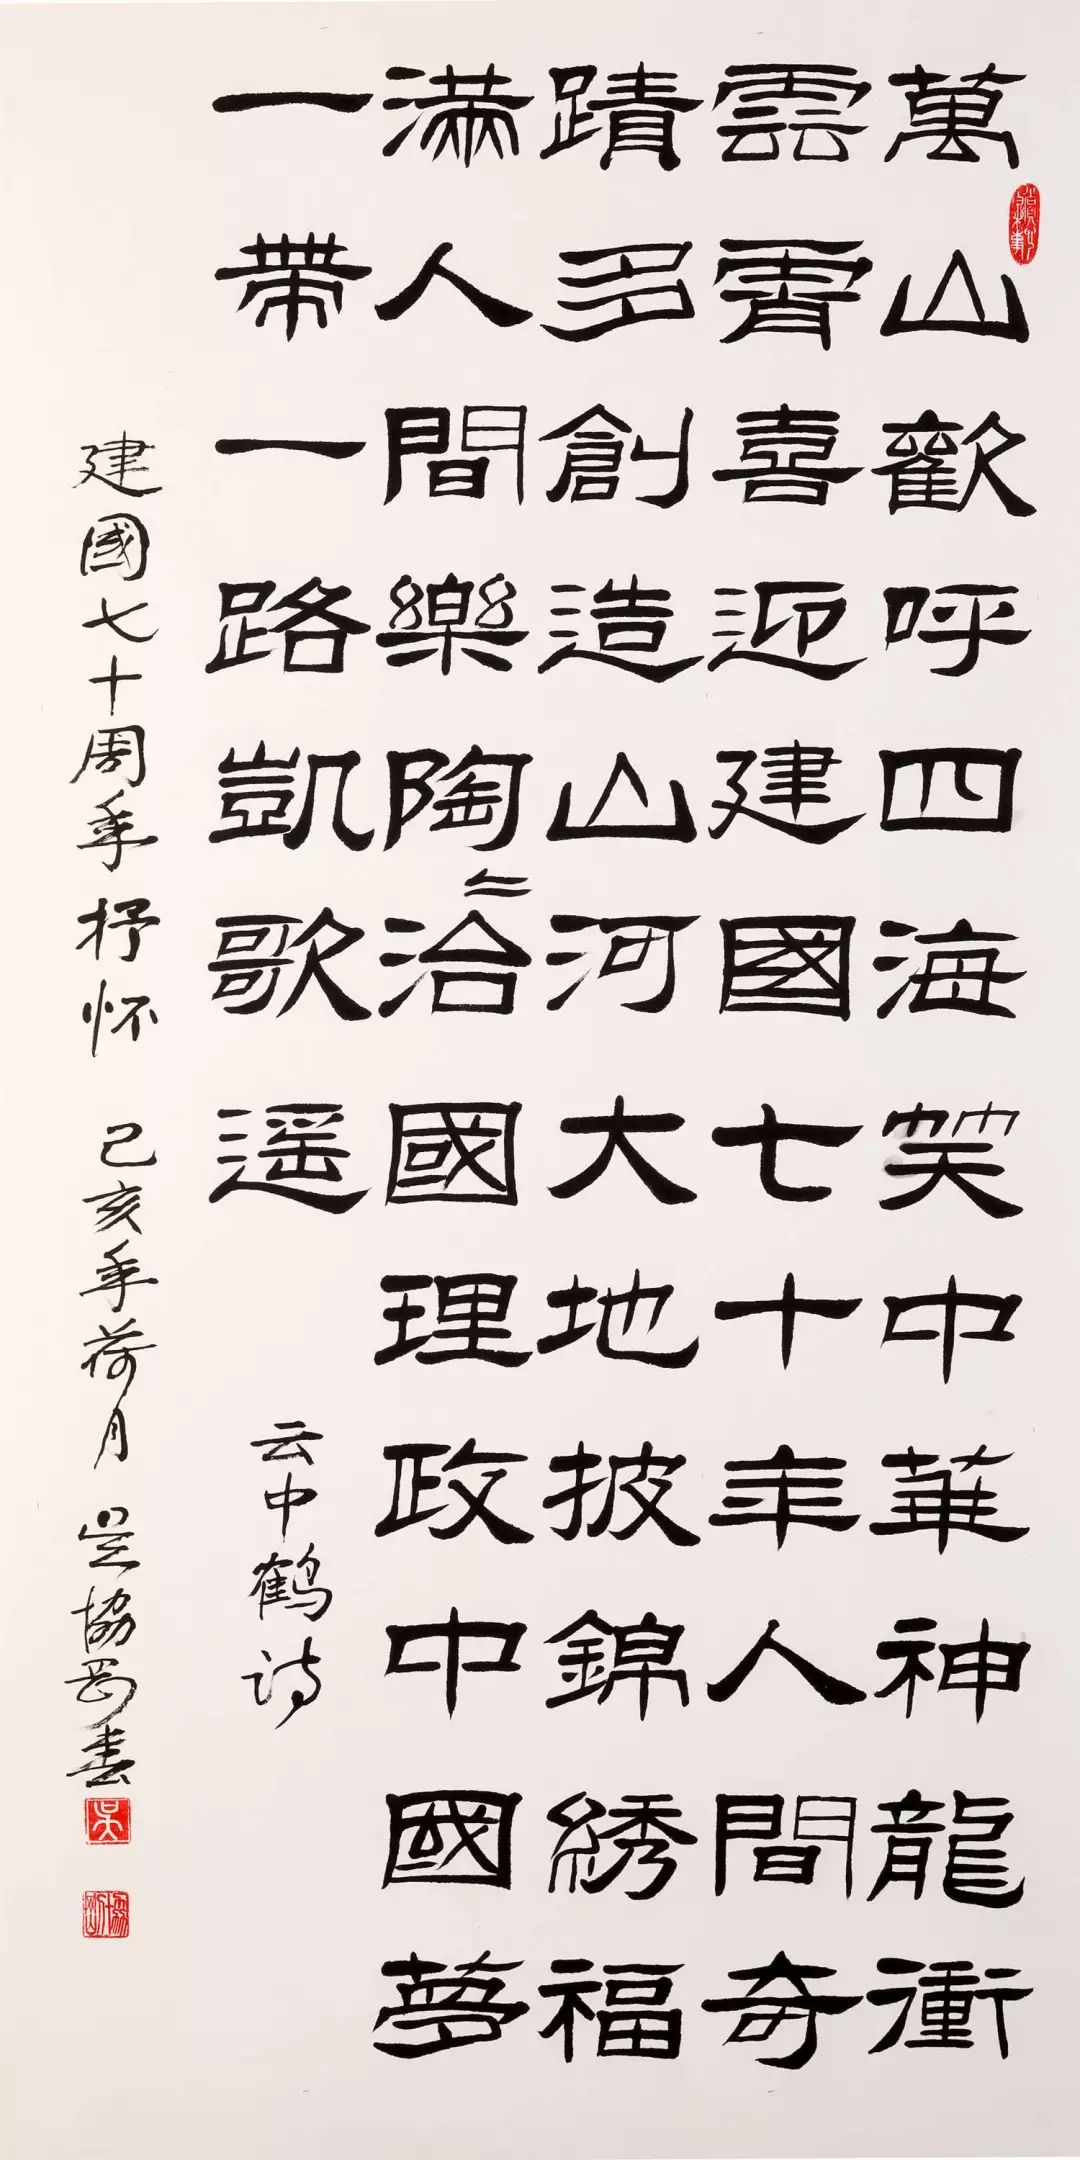 萬山歡呼四海笑中華神龍衝
雲霄喜迎建國七十年人間奇
蹟多創造山河大地披錦綉福
满人間樂陶〻治國理政中國夢
一帶一路凱歌遥
云中鹤诗
建國七十周年抒怀 己亥年荷月 吴協書
吴